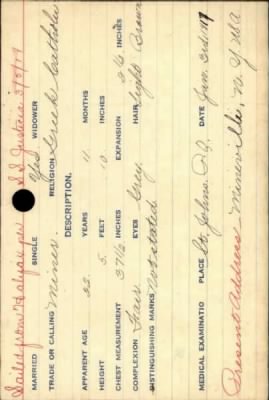 Sailed from Halifax per S.S. Justicia 3/5/17
MARRIED SINGLE Yes WIDOWER
TRADE OR CALLING Miner RELIGION Greek Catholic
DESCRIPTION.
APPARENT AGE 22 YEARS 11 MONTHS
HEIGHT 5 FEET 10 INCHES
CHEST MEASUREMENT 37½ INCHES EXPANSION 2½ INCHES
COMPLEXION Fair EYES Grey HAIR Light Brown
DISTINGUISHING MARKS Not stated
MEDICAL EXAMINATIO PLACE St. Johns. P.Q. DATE Jan. 3rd. 1917
Present Address Mineville, N.Y. USA